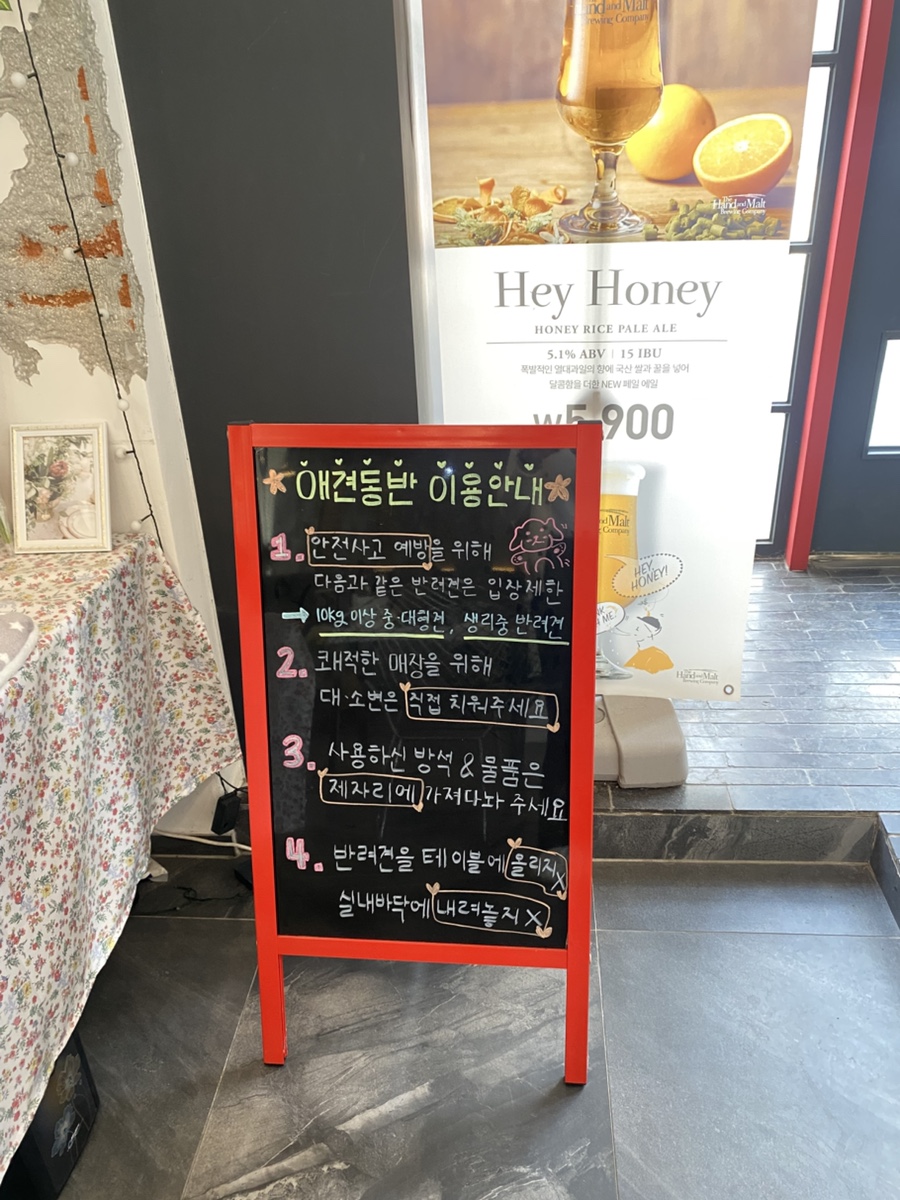 Hand and Malt
Brewing Company
The
Hand and Malt
Brewing Company
Hey Honey
HONEY RICE PALE ALE
5.1% ABV | 15 IBU
폭발적인 열대과일의 향에 국산 쌀과 꿀을 넣어
달콤함을 더한 NEW 페일 에일
₩5,900
애견동반 이용안내
1. 안전사고 예방을 위해
다음과 같은 반려견은 입장제한
→ 10kg 이상 중·대형견, 생리중 반려견
2. 쾌적한 매장을 위해
대·소변은 직접 치워주세요
3. 사용하신 방석 & 물품은
제자리에 가져다놔 주세요
4. 반려견을 테이블에 올리지X
실내바닥에 내려놓지 X
and Malt
Company
HEY,
HONEY!
ME!
The
Hand and Malt
Brewing Company